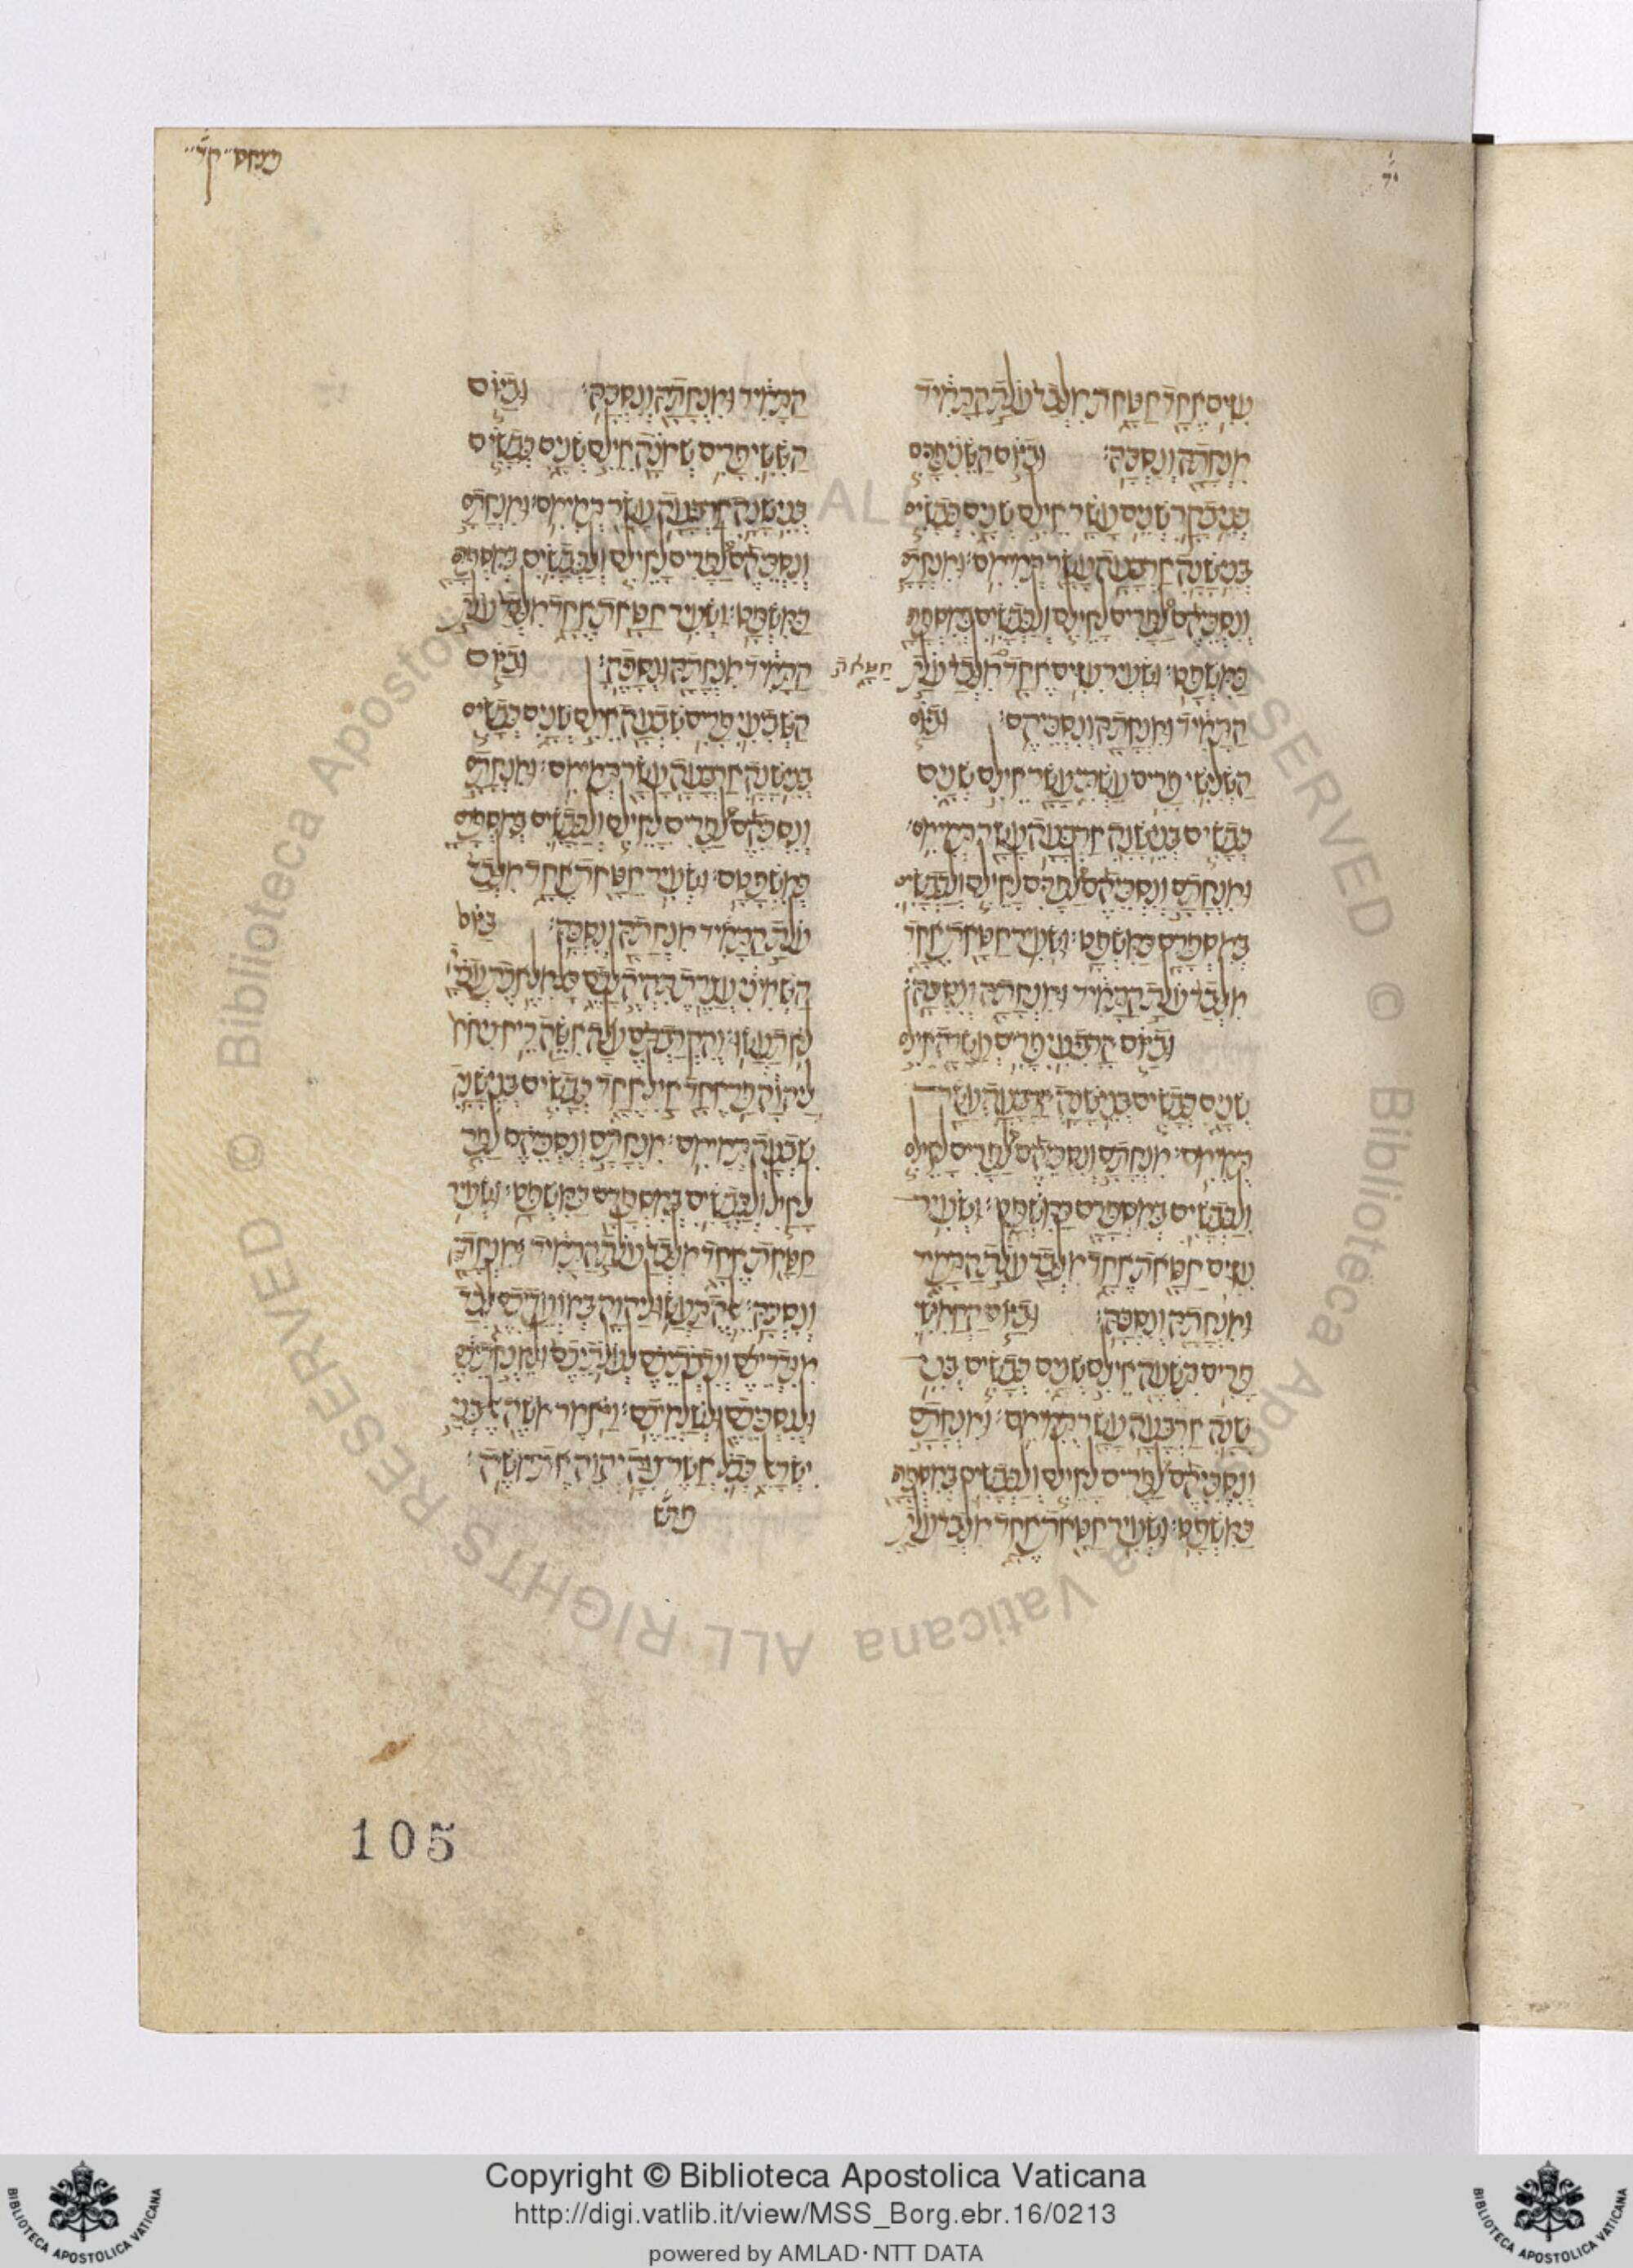 עזים אחד חטאת מלבד עלת התמיד
מנחתה ונסכה: וביום השני פרים
בני בקר שנים עשר אילם שנים כבשים
בני שנה ארבעה עשר תמימם: ומנחתם
ונסכיהם לפרים לאילם ולכבשים במספרם
כמשפט: ושעיר עזים אחד מלבד עלת
חטאת
התמיד ומנחתה ונסכיהם: וביום
השלישי פרים עשתי עשר אילם שנים
כבשים בני שנה ארבעה עשר תמימם:
ומנחתם ונסכיהם לפרים לאילם ולכבשים
במספרם כמשפט: ושעיר חטאת אחד
מלבד עלת התמיד ומנחתה ונסכה:
וביום הרביעי פרים עשרה אילם
שנים כבשים בני שנה ארבעה עשר
תמימם: מנחתם ונסכיהם לפרים לאילם
ולכבשים במספרם כמשפט: ושעיר
עזים חטאת אחד מלבד עלת התמיד
ומנחתה ונסכה: וביום החמישי
פרים תשעה אילם שנים כבשים בני
שנה ארבעה עשר תמימם: ומנחתם
ונסכיהם לפרים לאילם ולכבשים במספרם
כמשפט: ושעיר חטאת אחד מלבד עלת
התמיד ומנחתה ונסכה: וביום
הששי פרים שמנה אילם שנים כבשים
בני שנה ארבעה עשר תמימם: ומנחתם
ונסכיהם לפרים לאילם ולכבשים במספרם
כמשפט: ושעיר חטאת אחד מלבד עלת
התמיד מנחתה ונסכה: וביום
השביעי פרים שבעה אילם שנים כבשים
בני שנה ארבעה עשר תמימם: ומנחתם
ונסכהם לפרים לאילם ולכבשים במספרם
כמשפטם: ושעיר חטאת אחד מלבד
עלת התמיד מנחתה ונסכה: ביום
השמיני עצרת תהיה לכם כל מלאכת עבדה
לא תעשו: והקרבתם עלה אשה ריח ניחח
ליהוה פר אחד איל אחד כבשים בני שנה
שבעה תמימם: מנחתם ונסכיהם לפר
לאיל ולכבשים במספרם כמשפט: ושעיר
חטאת אחד מלבד עלת התמיד ומנחתה
ונסכה: אלה תעשו ליהוה במועדיכם לבד
מנדריכם ונדבתיכם לעלתיכם ולמנחתיכם
ולנסכיכם ולשלמיכם: ויאמר משה אל בני
ישראל ככל אשר צוה יהוה את משה:
פרש
105
Copyright © Biblioteca Apostolica Vaticana
http://digi.vatlib.it/view/MSS_Borg.ebr.16/0213
powered by AMLAD·NTT DATA